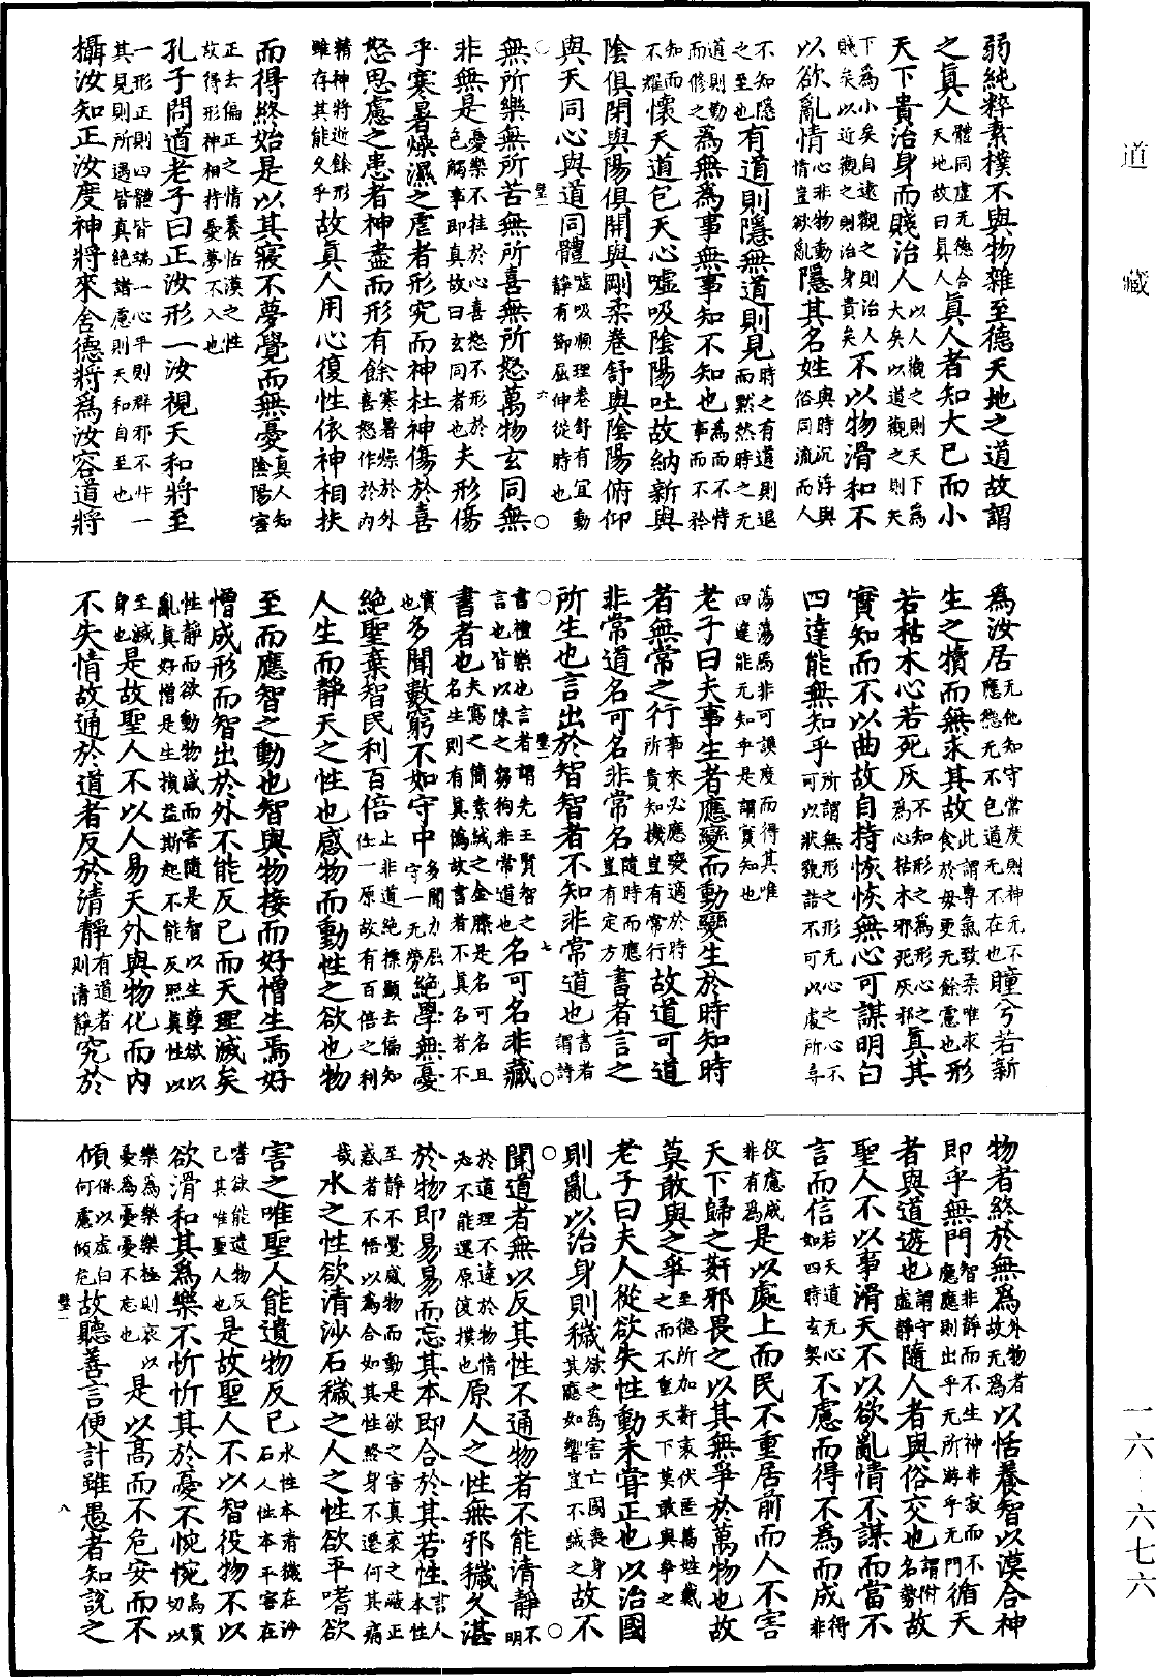 道藏
弱純粹素樸不與物雜至德天地之道故謂
之真人體同虛无德合天地故曰真人真人者知大已而小
天下貴治身而賤治人以人觀之則天下為大矣以道觀之則天
下為小矣自遠觀之則治人賤矣以近觀之則治身貴矣不以物滑和不
以欲亂情心非物動情豈欲亂隱其名姓與時沉浮與俗同流而人
不知隱之至也有道則隱無道則見時之有道則退而黙然時之无
道則勤而修之為無為事無事知不知也為而不恃事而不矜
知而不耀懷天道包天心噓吸陰陽吐故納新與
陰俱閉與陽俱開與剛柔卷舒與陰陽俯仰
與天同心與道同體噓吸順理卷舒有宜動靜有節屈伸從時也
無所樂無所苦無所喜無所怒萬物玄同無
非無是憂樂不挂於心喜怒不形於色觸事即真故曰玄同者也夫形傷
乎寒暑燥濕之虐者形究而神杜神傷於喜
怒思慮之患者神盡而形有餘寒暑燥於外喜怒作於內
精神將逝餘形雖存其能久乎故真人用心復性依神相扶
而得終始是以其寢不夢覺而無憂真人知陰陽害
正去偏正之情養恬漠之性故得形神相持憂夢不入也
孔子問道老子曰正汝形一汝視天和將至
一形正則四體皆端一心平則群邪不忤一其見則所遇皆真絕諸慮則天和自至也
攝汝知正汝度神將來舍德將為汝容道將
為汝居无他知守常度則神无不應德无不包道无不在也瞳兮若新
生之犢而無求其故此謂專氣致柔唯求食於母更无餘慮也形
若枯木心若死灰不知形之為形心之為心枯木邪死灰邪真其
實知而不以曲故自持恢恢無心可謀明白
四達能無知乎所謂無形之形无心之心不可以狀貌詰不可以處所尋
蕩蕩焉非可謨度而得其唯四達能无知乎是謂實知也
老子曰夫事生者應變而動變生於時知時
者無常之行事來必應變適於時所貴知機豈有常行故道可道
非常道名可名非常名隨時而應豈有定方書者言之
所生也言出於智智者不知非常道也謂詩書者
書禮樂也言者謂先王賢智之言也皆以陳之芻狗非常道也名可名非藏
書者也夫寫之簡素緘之金縢是名可名且名生則有真偽故書者不真名者不
實也多聞數窮不如守中多聞力屈守一无勞絕學無憂
絕聖棄智民利百倍止非道絕標顯去偏知任一原故有百倍之利
人生而靜天之性也感物而動性之欲也物
至而應智之動也智與物接而好憎生焉好
憎成形而智出於外不能反己而天理滅矣
性靜而欲動物感而害隨是智以生孽欲以亂真好憎是生損益斯起不能反照真性以
至滅身也是故聖人不以人易天外與物化而內
不失情故通於道者反於清靜有道者則清靜究於
物者終於無為外物者故无為以恬養智以漠合神
即乎無門智非靜而不生神非寂而不應應則出乎无所游乎无門循天
者與道遊也謂守虛靜隨人者與俗交也謂附名勢故
聖人不以事滑天不以欲亂情不謀而當不
言而信若天道无心如四時玄契不慮而得不為而成得非
役慮成非有為是以處上而民不重居前而人不害
天下歸之姦邪畏之以其無爭於萬物也故
莫敢與之爭至德所加姦衺伏匿萬姓戴之而不重天下莫敢與爭之
老子曰夫人從欲失性動未嘗正也以治國
則亂以治身則穢欲之為害亡國喪身其應如響豈不誡之故不
聞道者無以反其性不通物者不能清靜不明
於道理不達於物情必不能還原復樸也原人之性無邪穢久湛
於物即易易而忘其本即合於其若性言人本性
至靜不覺感物而動是欲之害真衺之蔽正惑者不悟以為合如其性終身不遷何其痛
哉水之性欲清沙石穢之人之性欲平嗜欲
害之唯聖人能遺物反己水性本清穢在沙石人性本平害在
嗜欲能遺物反己其唯聖人也是故聖人不以智役物不以
欲滑和其為樂不忻忻其於憂不惋惋為貿切以
樂為樂樂極則哀以憂為憂憂不忘也是以高而不危安而不
傾保以虛白何慮傾危故聽善言便計雖愚者知說之
一六—六七六